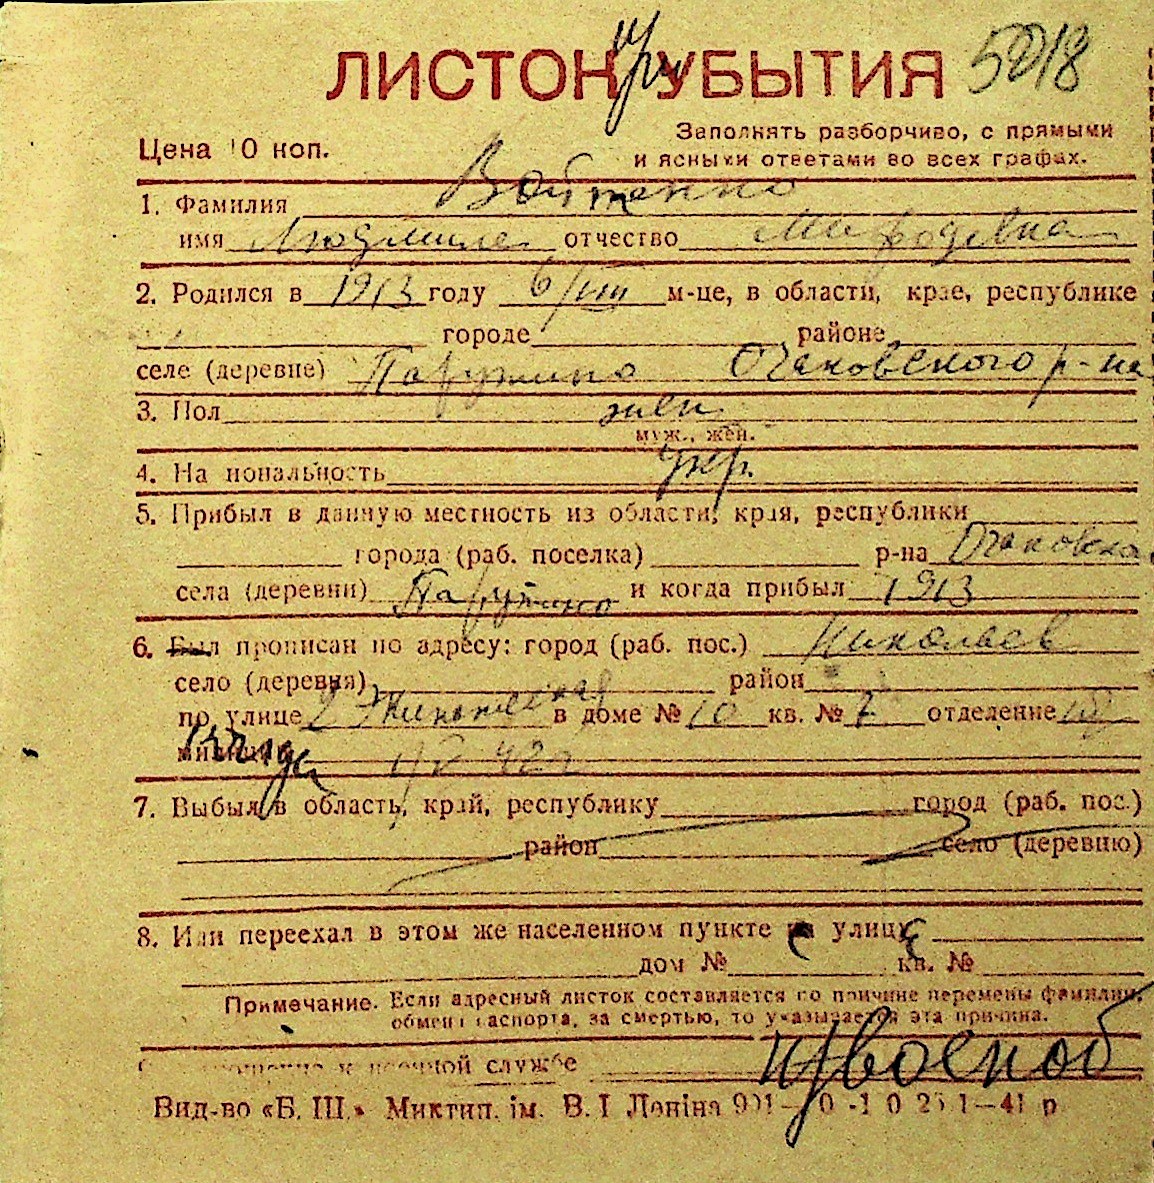 ЛИСТОК УБЫТИЯ 5018
при
Цена 10 коп.
Заполнять разборчиво, с прямыми
и ясными ответами во всех графах.
1. Фамилия Войтенко
имя Людмила отчество
2. Родился в 1913 году 6/VIII м-це, в области, крае, республике
городе районе
селе (деревне) Парутино Очаковского р-на
3. Пол жен
муж., жен.
4. Национальность укр.
5. Прибыл в данную местность из области, края, республики
города (раб. поселка) р-на Очаковска
села (деревни) Парутино и когда прибыл 1913
6. Был прописан по адресу: город (раб. пос.) Николаев
село (деревня) район
по улице 2 в доме № 10 кв. № 7 отделение
милиции 42 г
7. Выбыл в область, край, республику город (раб. пос.)
район село (деревню)
8. Или переехал в этом же населенном пункте на улицу
дом № кв. №
Примечание. Если адресный листок составляется по причине перемены фамилии,
обмен паспорта, за смертью, то указывается эта причина.
к военной службе
Вид-во «Б. Ш.» Миктип. ім. В. І Леніна